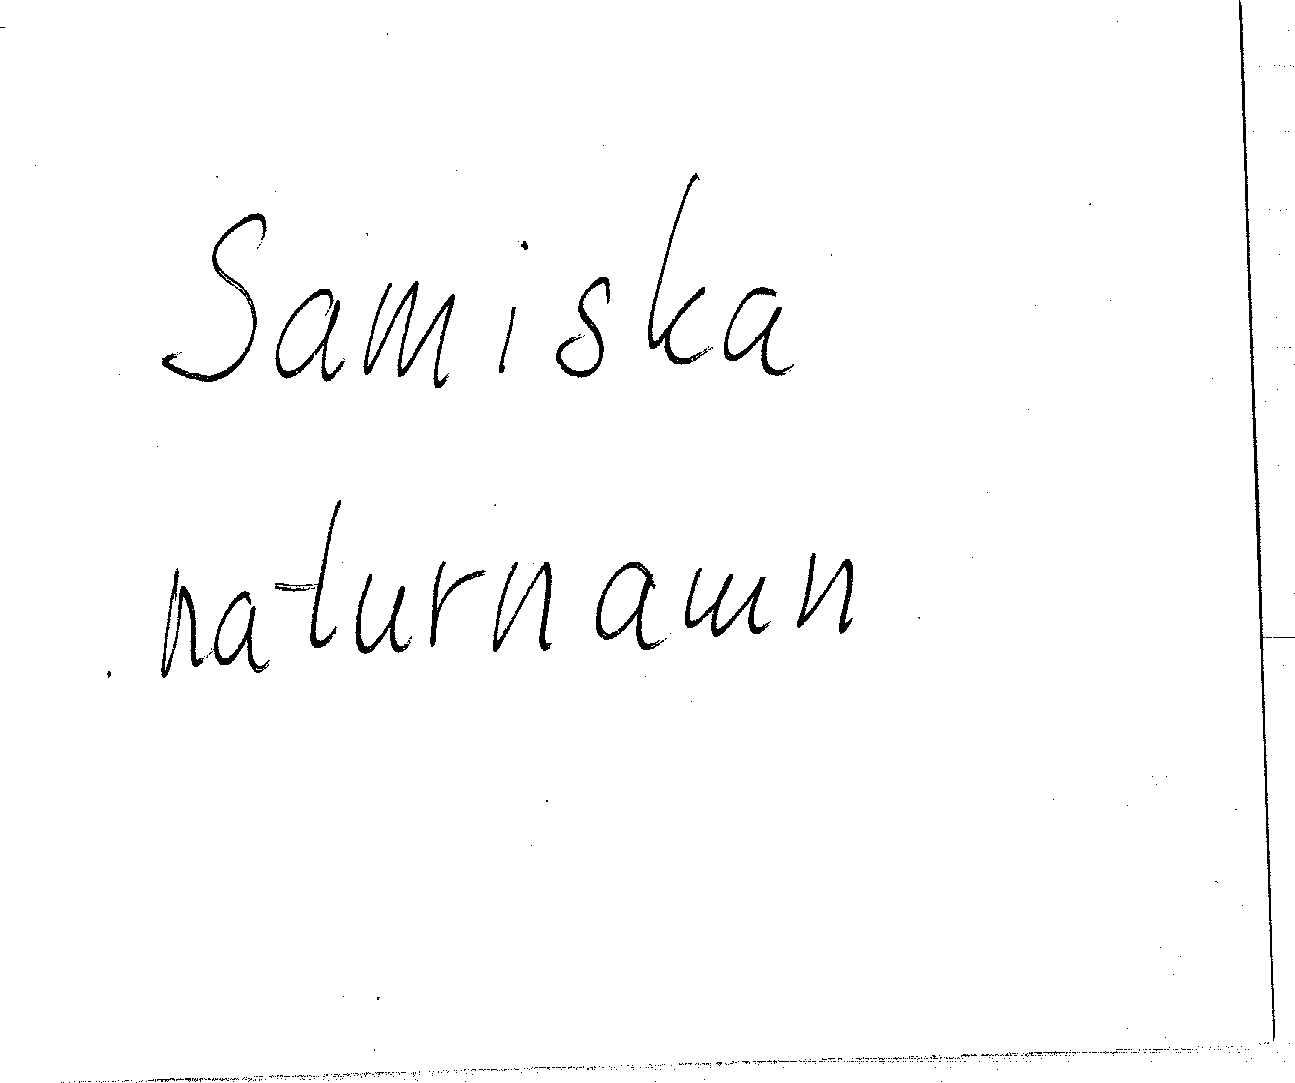 Samiska
naturnamn